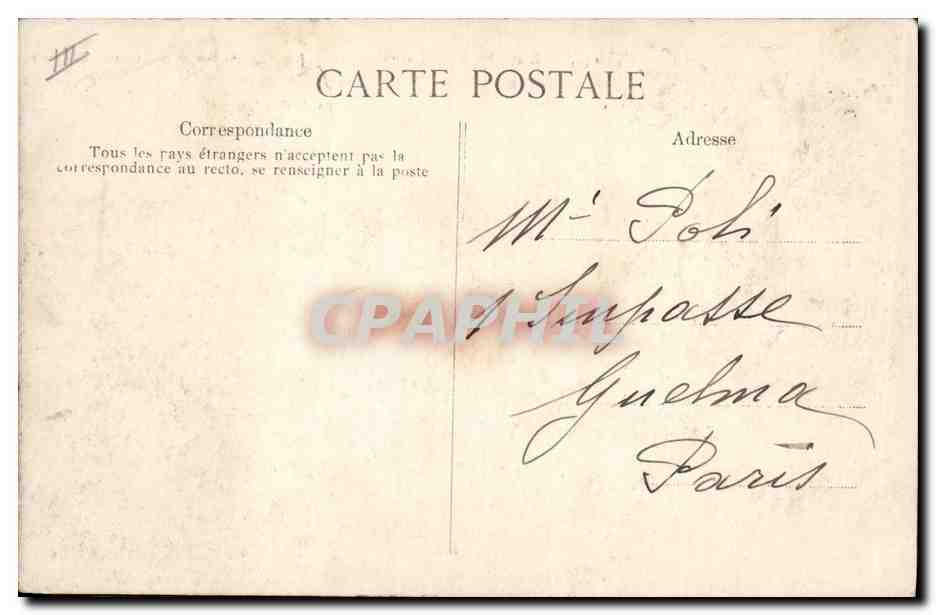 III
CARTE POSTALE
Correspondance
Tous les pays étrangers n'acceptent pas la
correspondance au recto, se renseigner à la poste
Adresse
Mr Poli
1 Impasse
Guelma
Paris
CPAPHIL